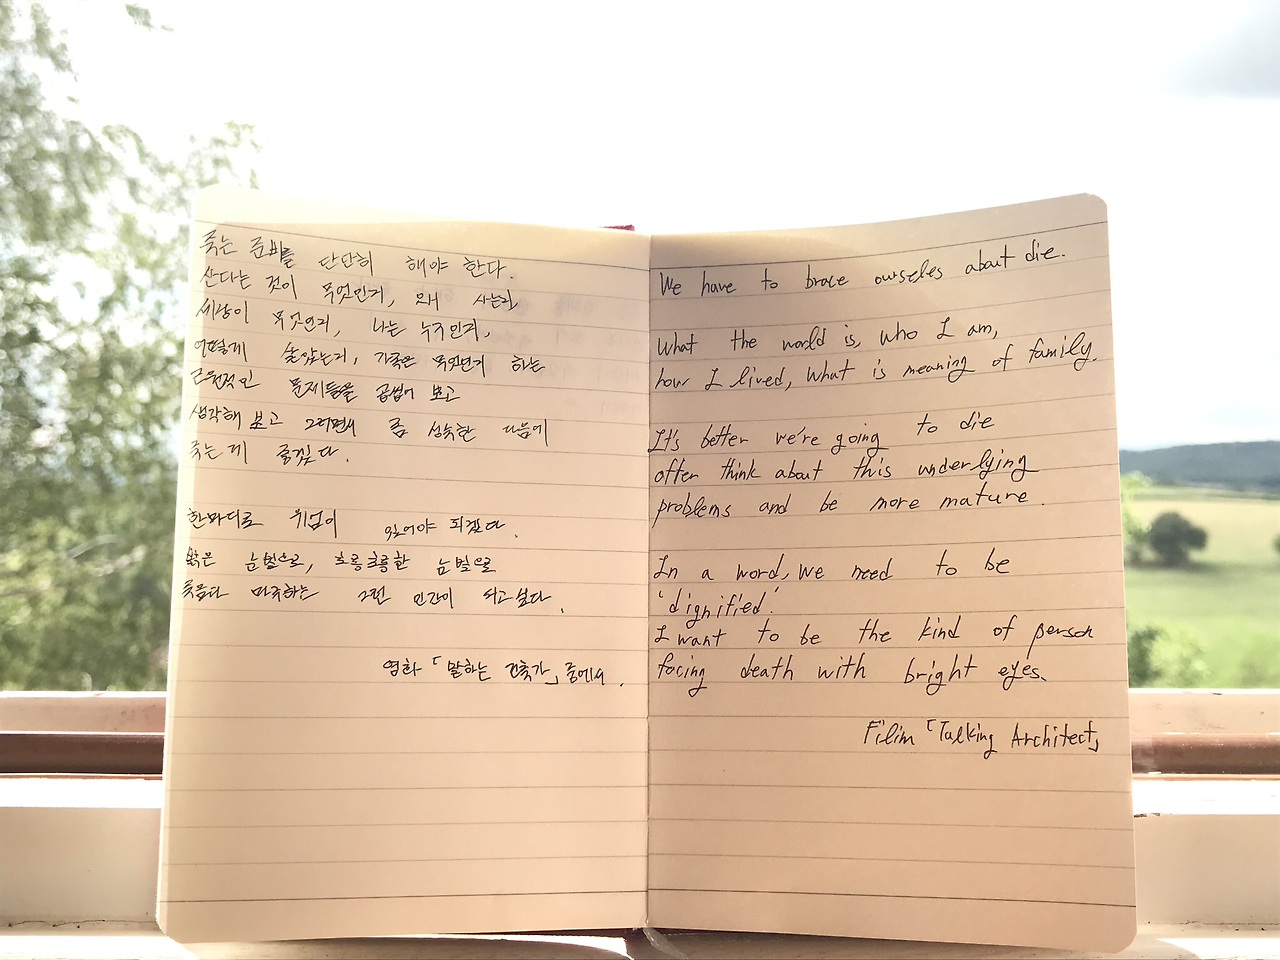 죽는 준비를 단단히 해야 한다.
산다는 것이 무엇인지, 왜 사는지,
세상이 무엇인지, 나는 누구인지,
어떻게 살았는지, 가족은 무엇인지 하는
근원적인 문제들을 곱씹어 보고
생각해 보고 그러면서 좀 성숙한 다음에
죽는 게 좋겠다.
한마디로 위엄이 있어야 되겠다.
밝은 눈빛으로, 초롱초롱한 눈빛으로
죽음과 마주하는 그런 인간이 되고 싶다.
영화 「말하는 건축가」 중에서.
We have to brace ourselves about die.
What the world is, who I am,
how I lived, what is meaning of family.
It's better we're going to die
often think about this underlying
problems and be more mature.
In a word, we need to be
'dignified.'
I want to be the kind of person
facing death with bright eyes.
Filim 「Talking Architect」